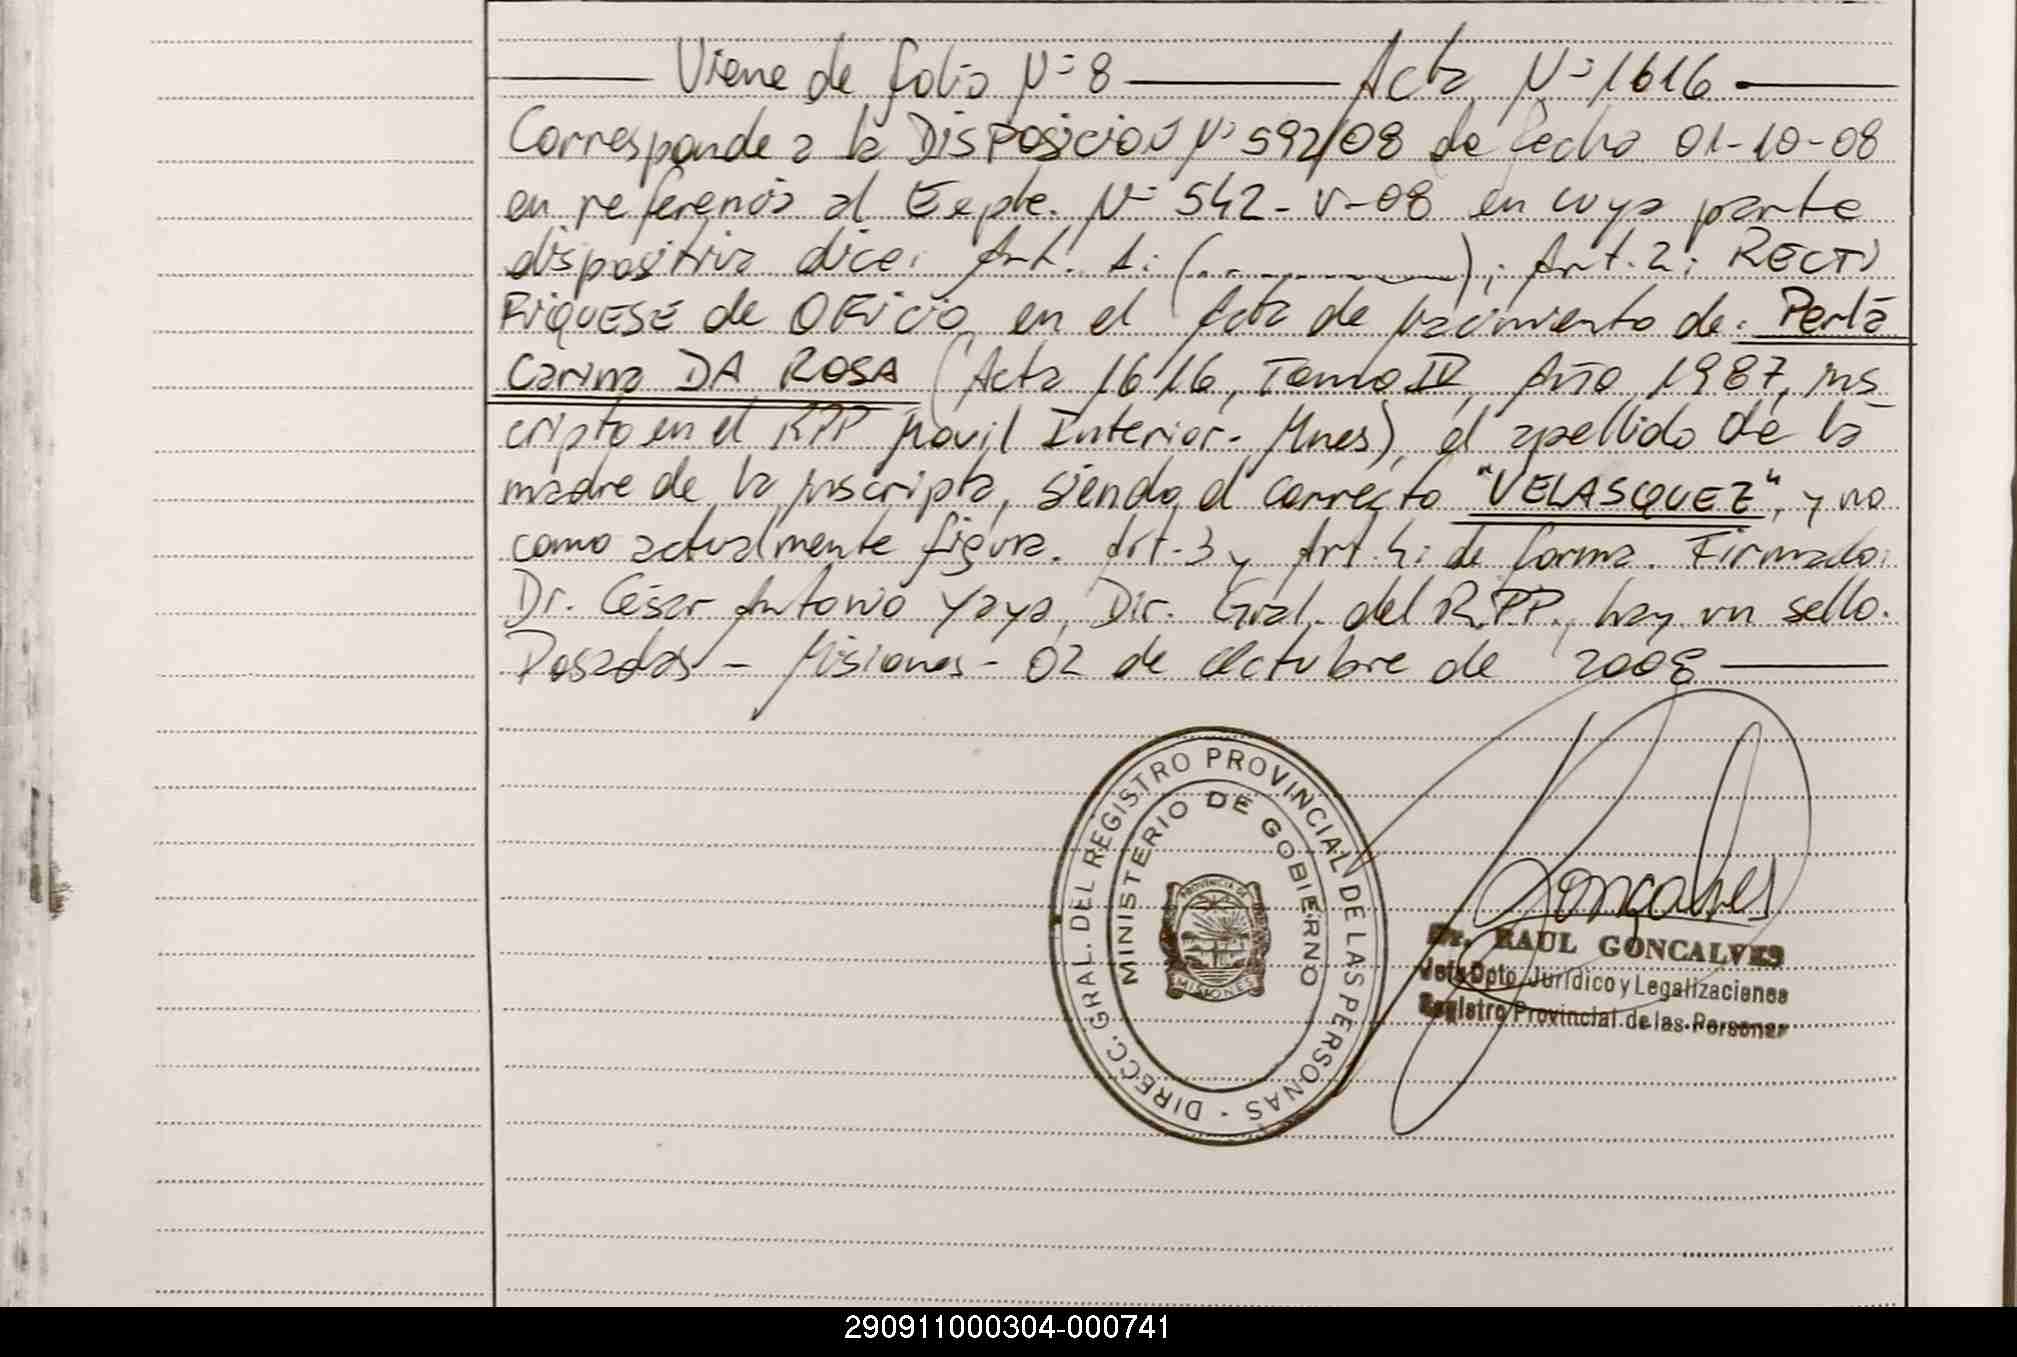 Viene de folio Nº 8 Acta Nº 1616
Corresponde a la DISPOSICION Nº 592/08 de fecha 01-10-08
en referencia al Expte. Nº 542-V-08 en cuya parte
dispositiva dice: Art. 1: (..............); Art. 2: RECTI
FIQUESE de OFICIO en el Acta de nacimiento de: Perla
Carina DA ROSA (Acta 1616, Tomo IV, Año 1987, ins
cripto en el RPP Movil Interior - Mnes), el apellido de la
madre de la inscripta, siendo el correcto "VELASQUEZ", y no
como actualmente figura. Art. 3 y Art. 4: de forma. Firmado:
Dr. César Antonio Yaya, Dir. Gral. del R.PP., hay un sello.
Posadas - Misiones - 02 de Octubre de 2008
DIRECC. GRAL. DEL REGISTRO PROVINCIAL DE LAS PERSONAS -
MINISTERIO DE GOBIERNO
PROVINCIA DE
MISIONES
Goncalves
Dr. RAUL GONCALVES
Jefe Dpto. Jurídico y Legalizaciones
Registro Provincial de las Personas
290911000304-000741